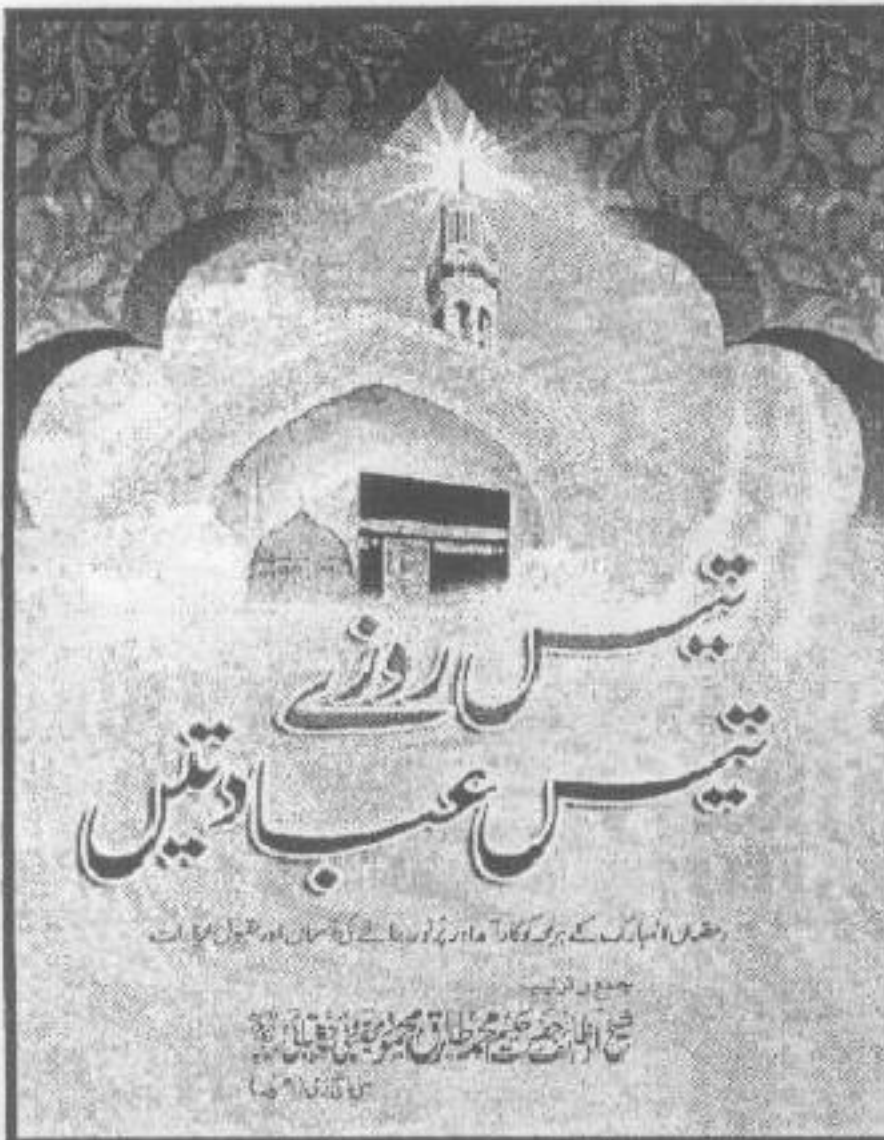 تیس روزے
تیس عبادتیں
رمضان المبارک کے ہر لمحہ کو کارآمد اور پُرنور بنانے کی آسان اور مقبول عبادات
جمع و ترتیب
شیخ حضرت حکیم محمد طارق محمود چغتائی
پی ایچ ڈی (امریکہ)